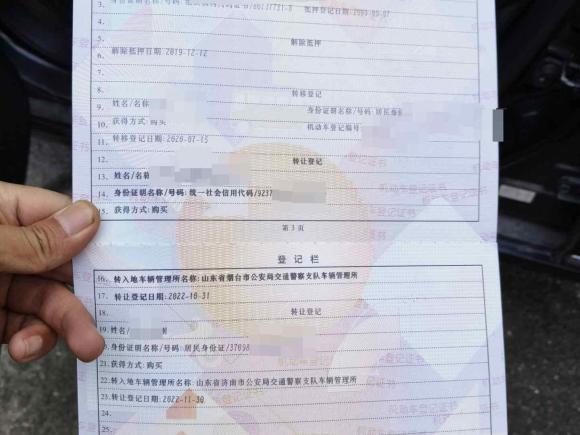 3.
抵押登记日期:
4.
5. 解除抵押
6. 解除抵押日期:2019-12-12
7.
8. 转移登记
9. 姓名/名称 身份证明名称/号码:居民身
10. 获得方式:购买 机动车登记编号
11. 转移登记日期:2020-07-15
12. 转让登记
13. 姓名
14. 身份证明名称/号码:统一社会信用代码/9237
15. 获得方式:购买
第3页
登记栏
16. 转入地车辆管理所名称:山东省烟台市公安局交通警察支队车辆管理所
17. 转让登记日期:2022-10-31
18. 转让登记
19. 姓名/
身份证明名称/号码:居民身份证/37098
21. 获得方式:购买
22. 转入地车辆管理所名称:山东省济南市公安局交通警察支队车辆管理所
23. 转让登记日期:2022-11-30
24.
25.